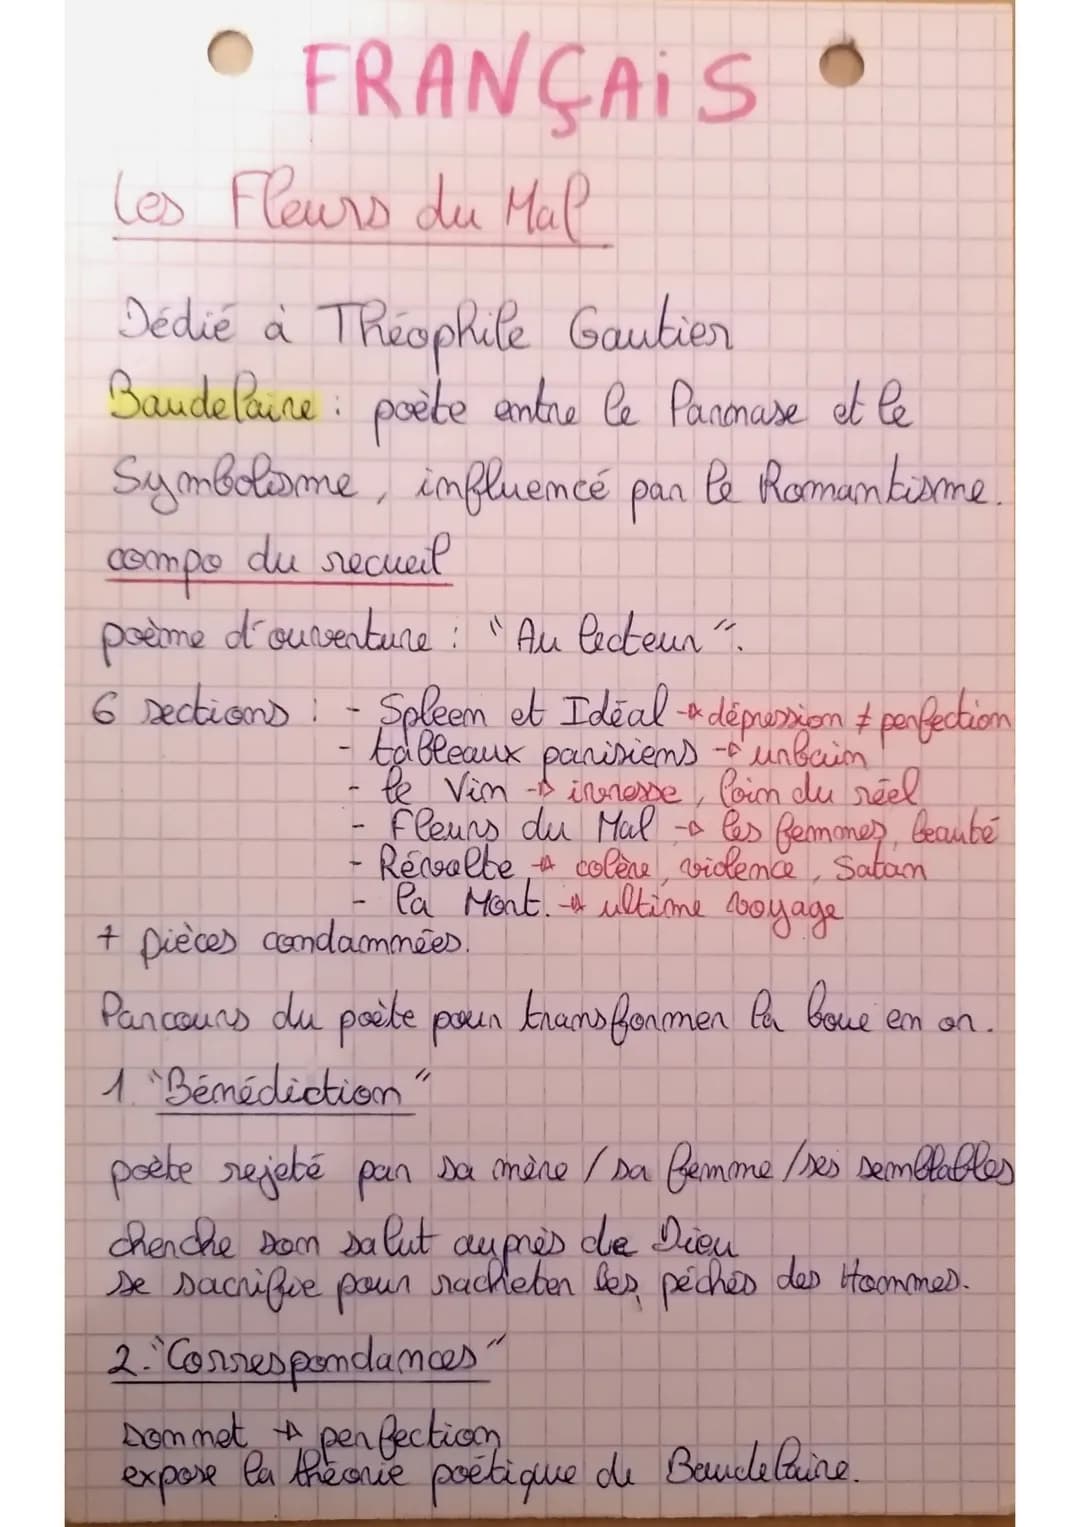 FRANÇAIS
Les Fleurs du Mal
Dédié à Théophile Gautier
Baudelaire : poète entre le Parnase et le
Symbolisme, influencé par le Romantisme.
compo du recueil
poème d'ouverture : "Au lecteur".
6 sections : - Spleen et Idéal → dépression ≠ perfection
- tableaux parisiens → urbain
- le Vin → ivresse, loin du réel
- Fleurs du Mal → les femmes, beauté
- Révolte → colère, violence, Satan
- la Mort. → ultime voyage
+ pièces condamnées.
Parcours du poète pour transformer la boue en or.
1. "Bénédiction"
poète rejeté par sa mère / sa femme / ses semblables
cherche son salut auprès de Dieu
se sacrifie pour racheter les péchés des Hommes.
2. "Correspondances"
sonnet → perfection
expose la théorie poétique de Baudelaire.